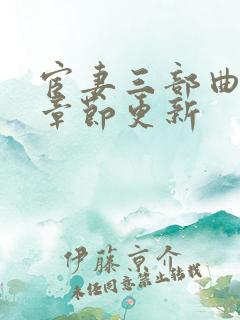 宦妻三部曲
章節更新
伊藤京介
未经同意禁止转载